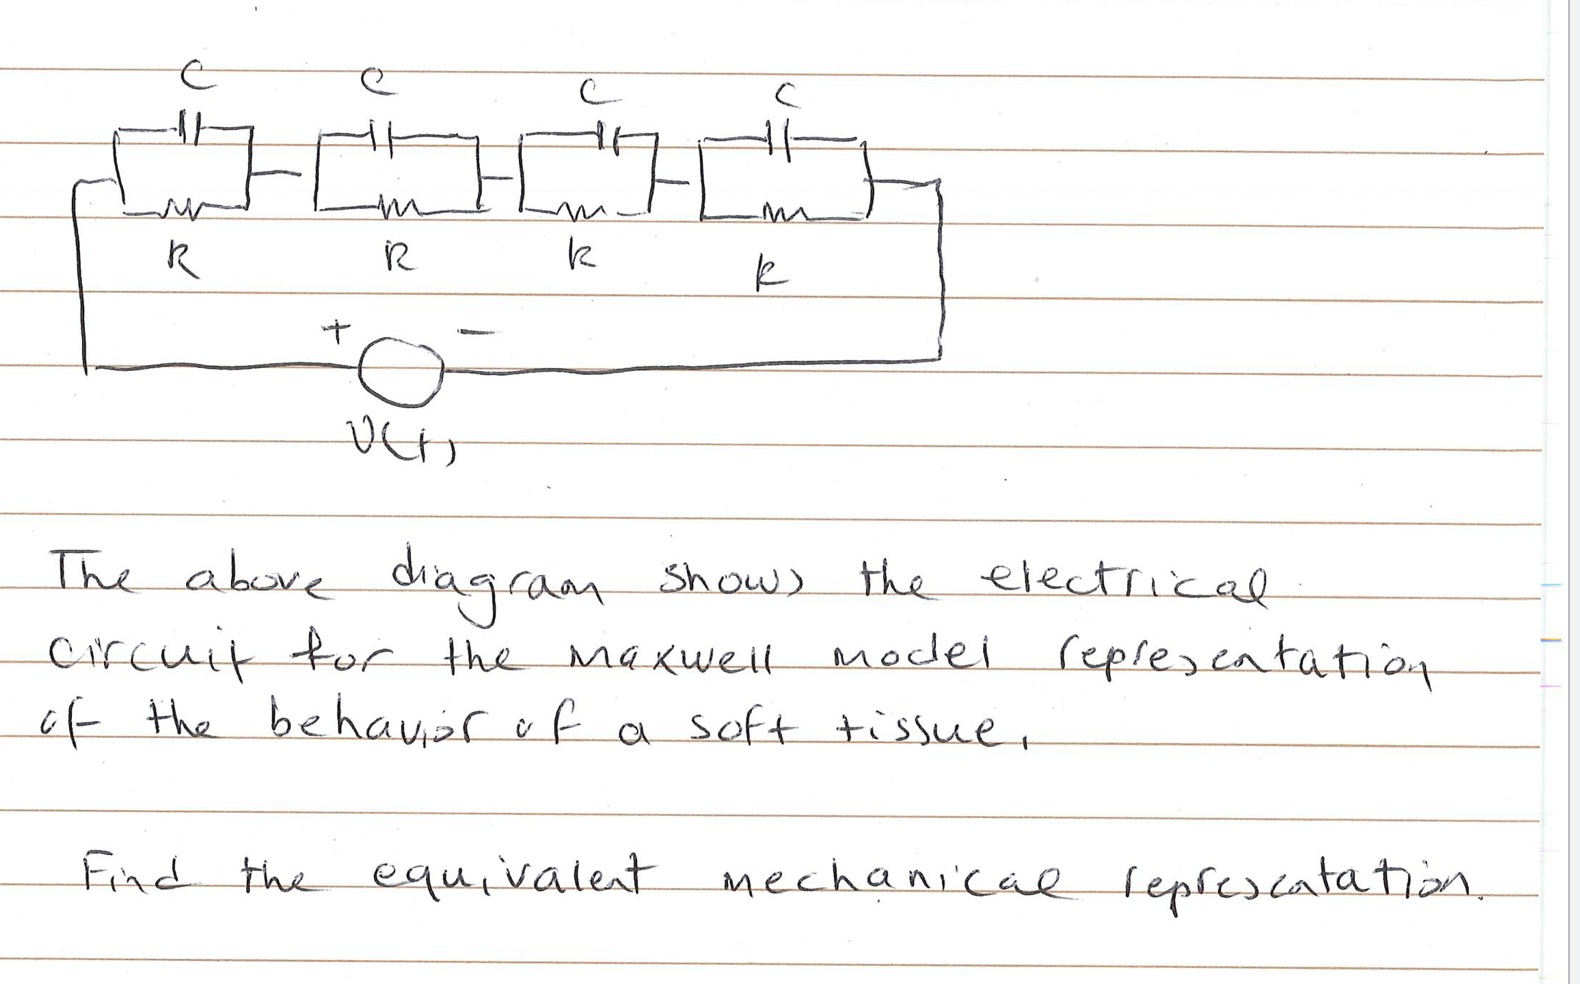 C C C C
R R R R
+ −
V(t)
The above diagram shows the electrical
circuit for the Maxwell model representation
of the behavior of a soft tissue.
Find the equivalent mechanical representation.